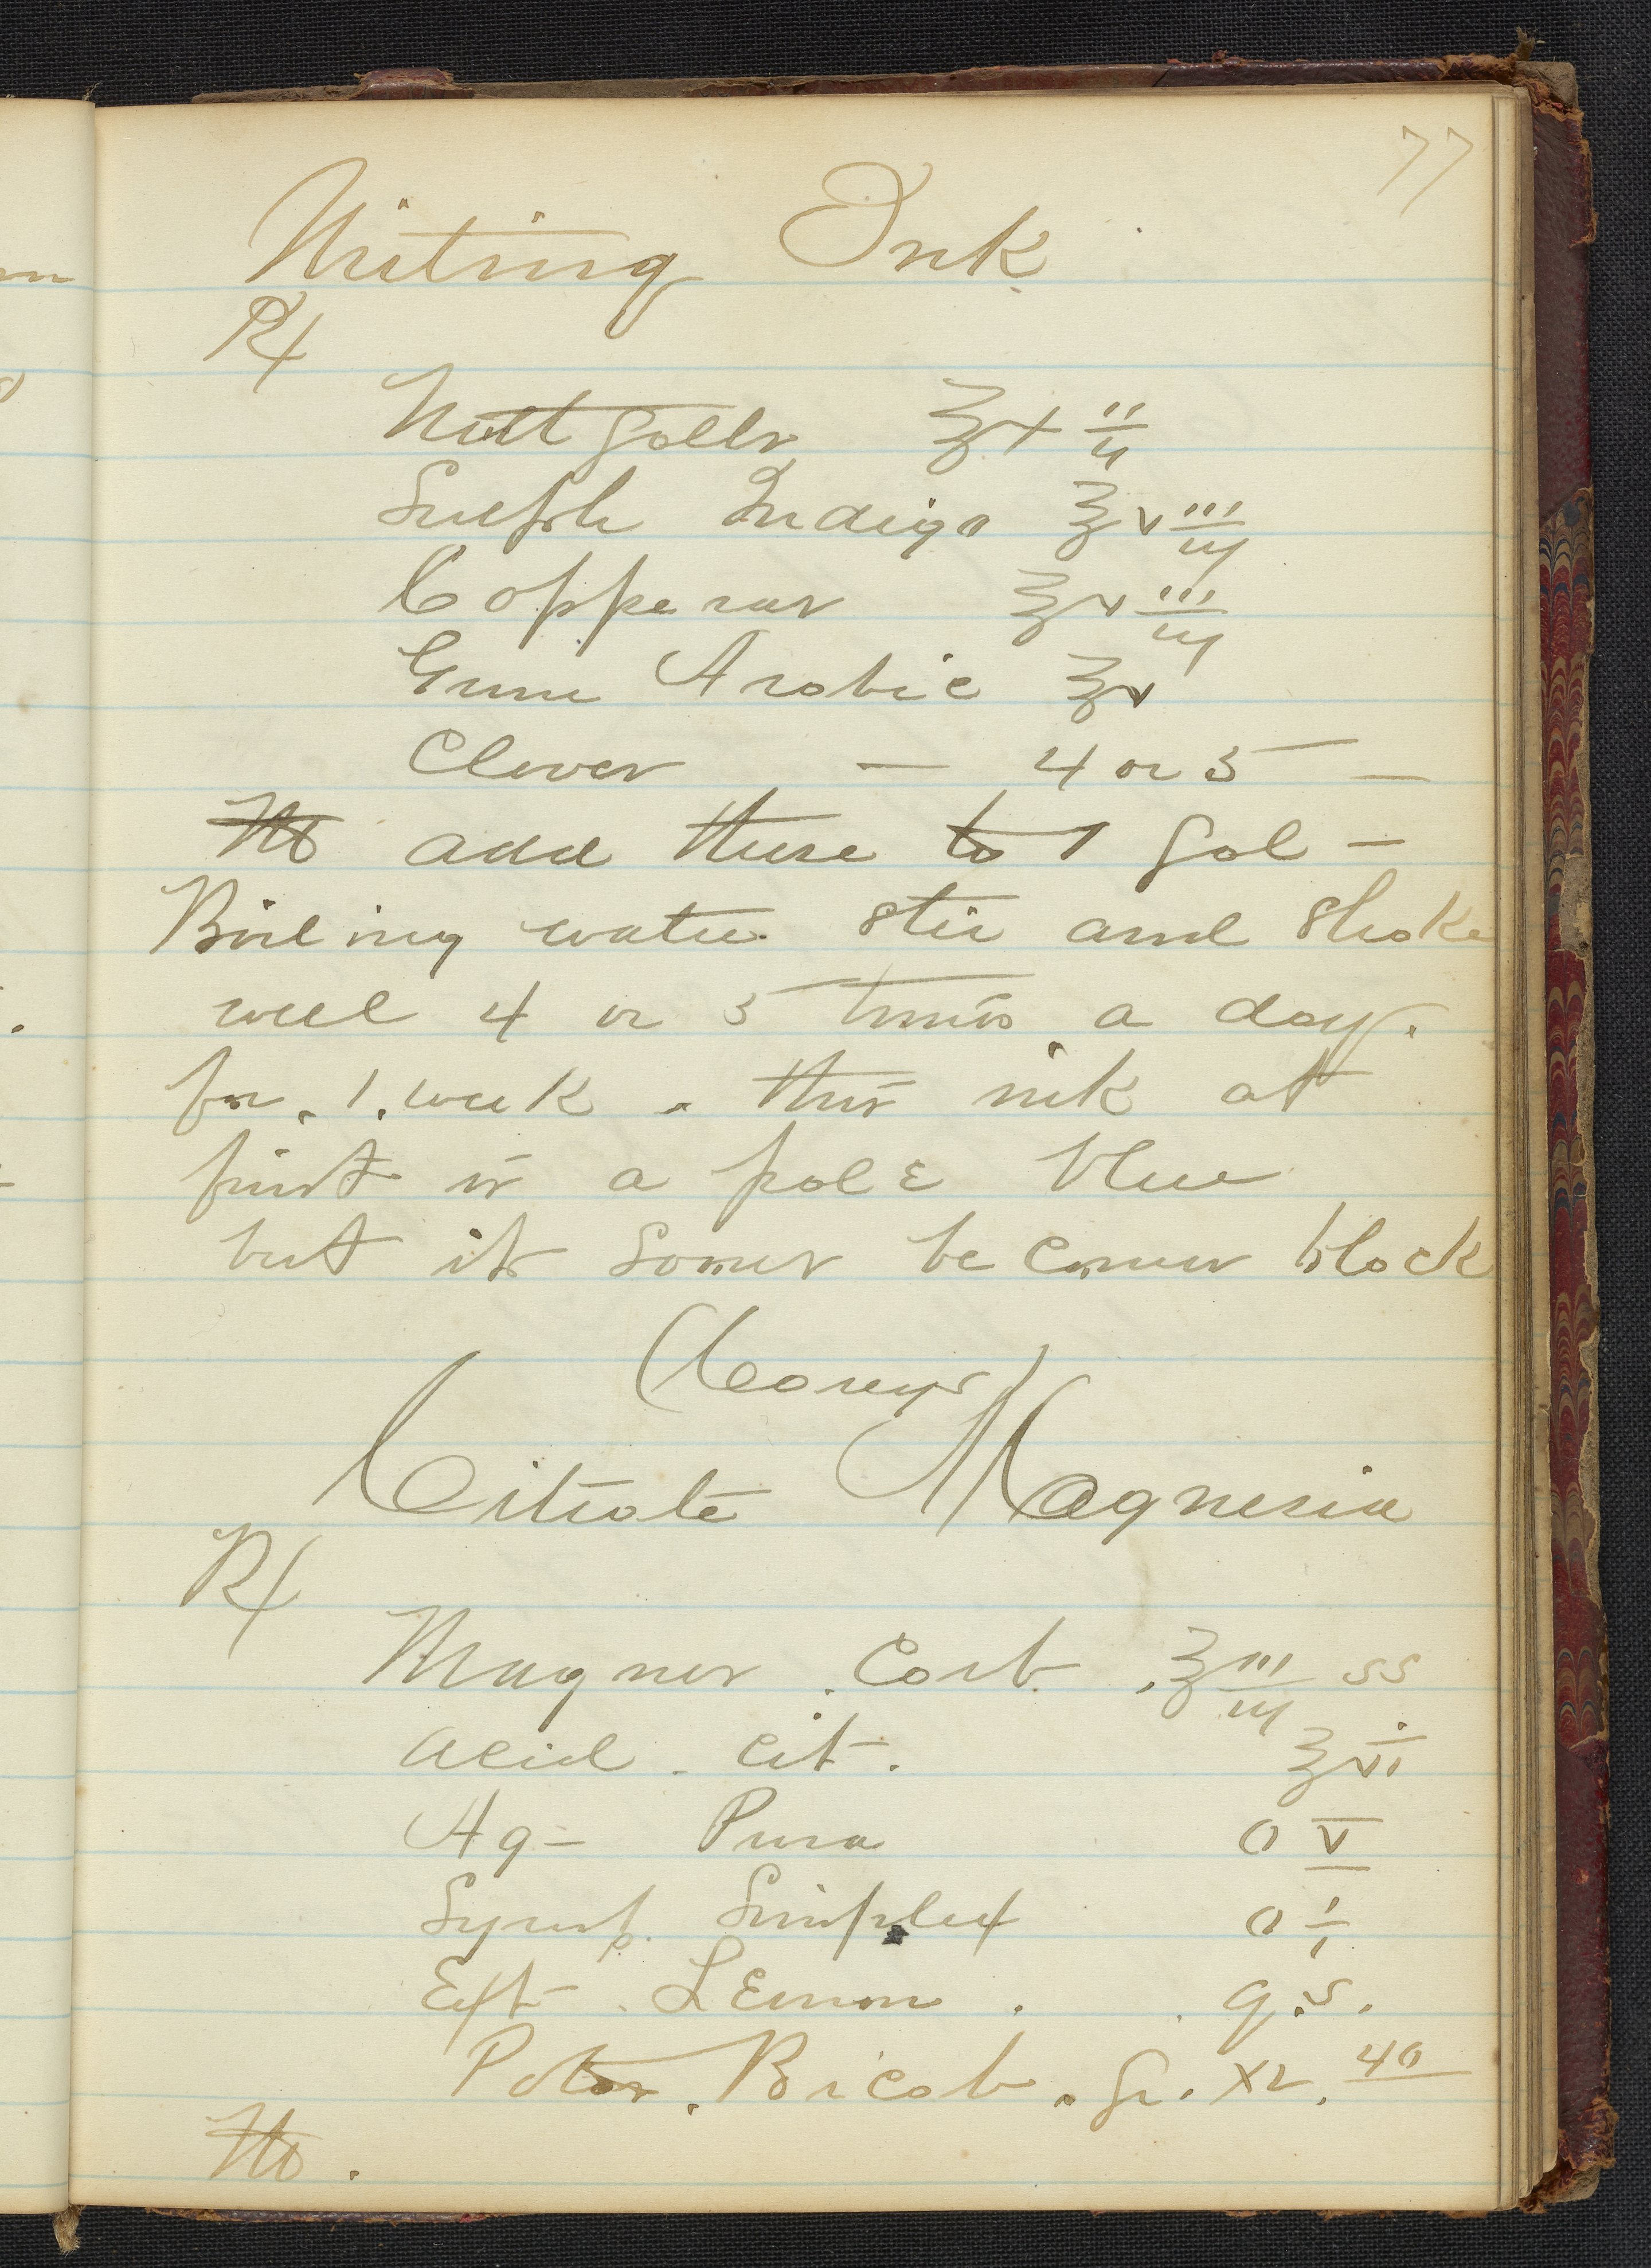 77
Writing Ink
℞
Nutt galls ℥ x ii
Sulph Indigo ℥ viii
Copperas ℥ viii
Gum Arabic ℥ v
Cloves — 4 or 5 —
M add these to 1 gal —
Boiling water stir and shake
well 4 or 5 times a day.
for . 1 . week . this ink at
first is a pale blue
but it becomes black
Citrate Magnesia
℞
Magnes . Carb . ℥ iii ss
Acid . Cit .
Aq – Pura O v
Syrup. Simplex O i
Ext . Lemon . . q.s.
Potas . Bicarb . Gr . XL . 40
M .